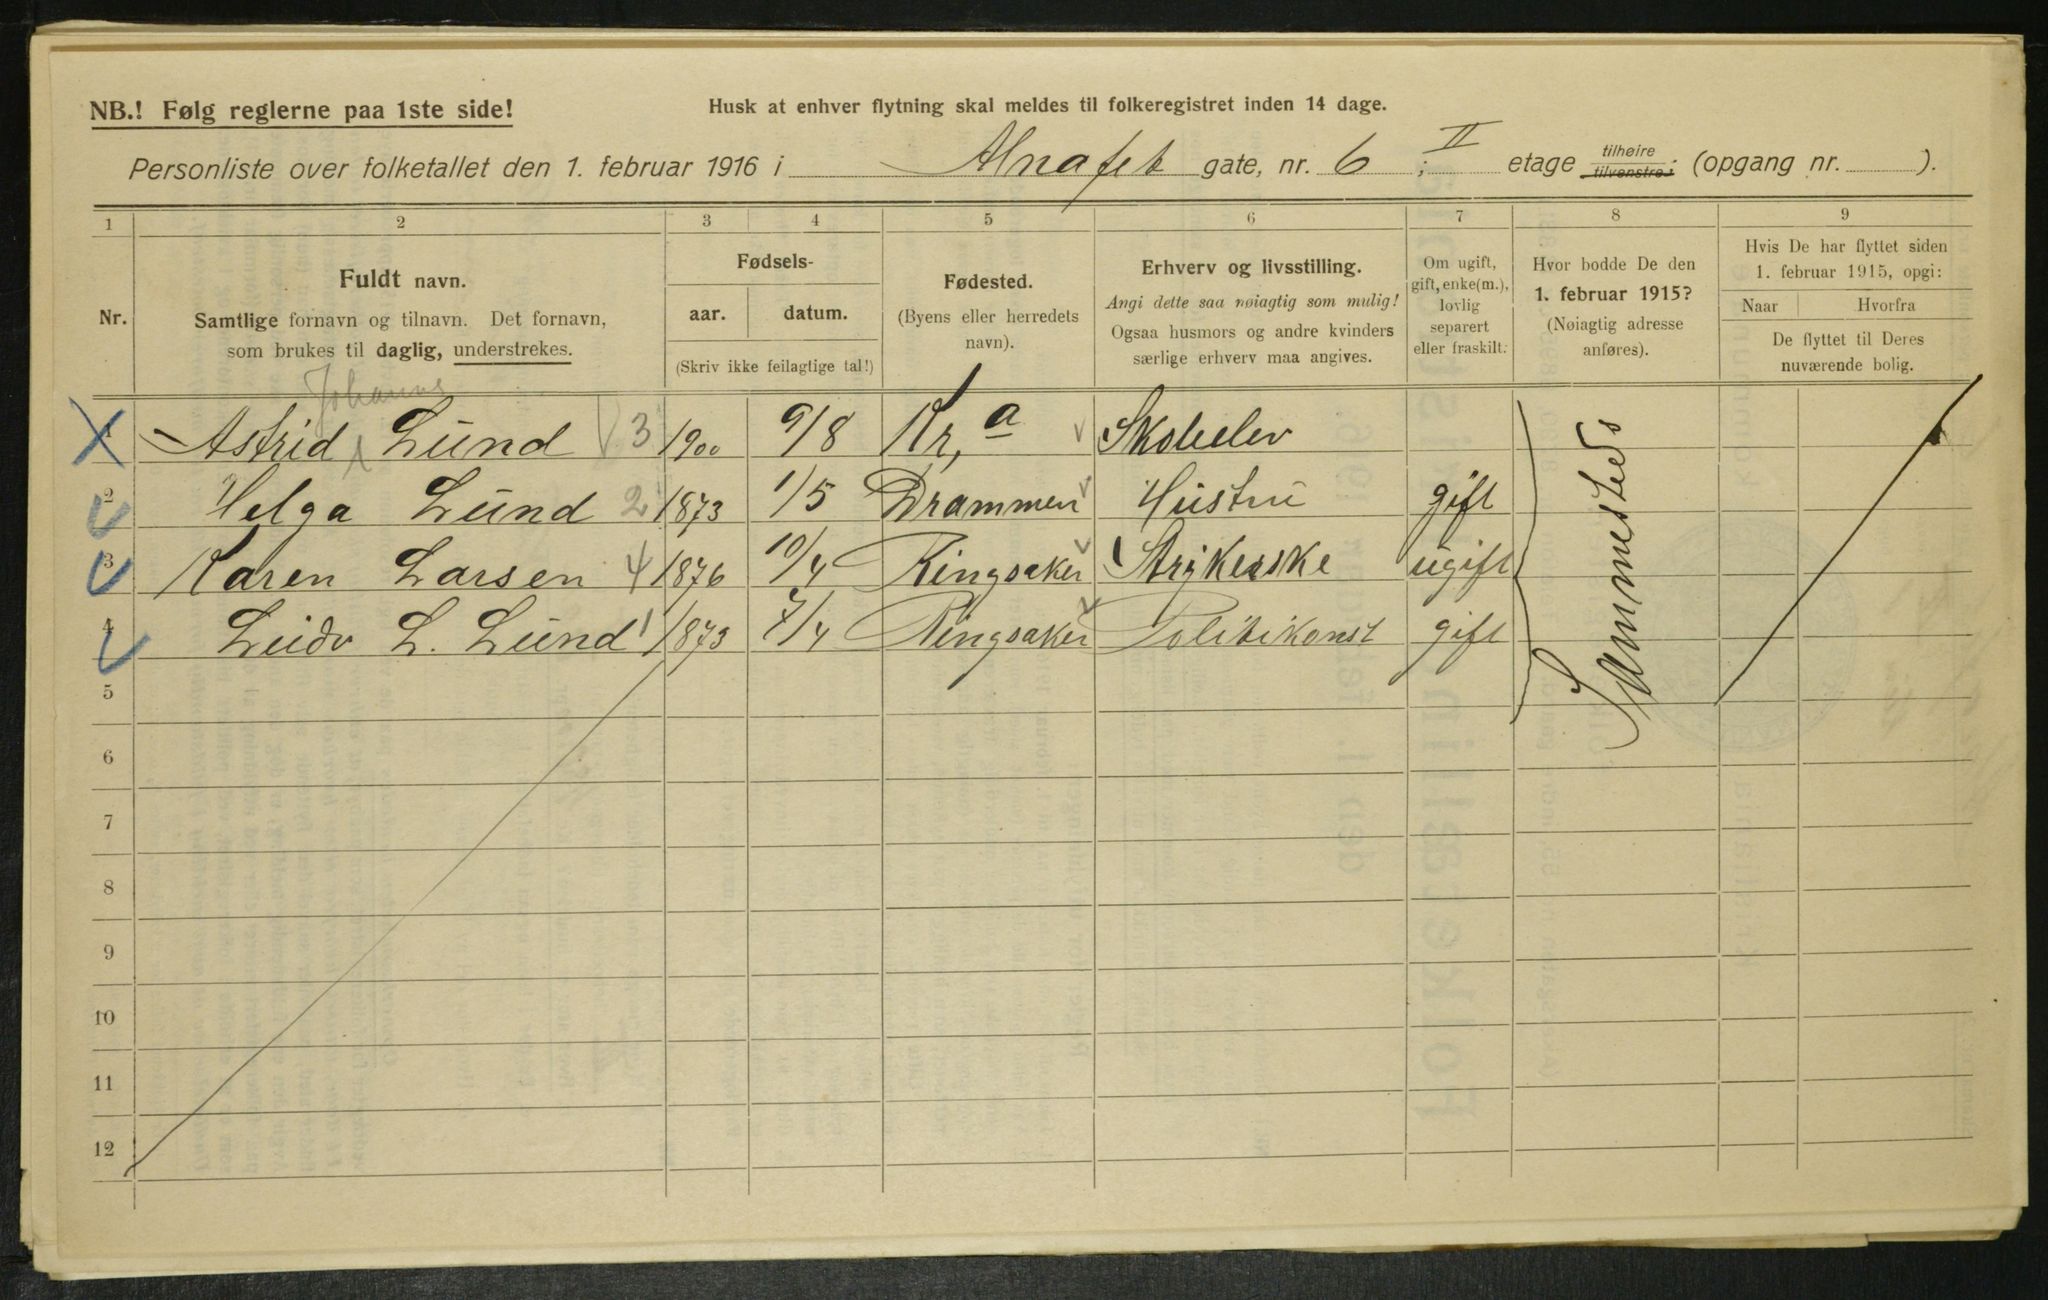 NB.! Følg reglerne paa 1ste side!
Husk at enhver flytning skal meldes til folkeregistret inden 14 dage.
Personliste over folketallet den 1. februar 1916 i Alnafet gate, nr. 6 ; II etage tilhøire tilvenstre; (opgang nr. ).
1 2 3 4 5 6 7 8 9
Nr.
Fuldt navn.
Samtlige fornavn og tilnavn. Det fornavn,
som brukes til daglig, understrekes.
Fødsels-
aar. datum.
(Skriv ikke feilagtige tal!)
Fødested.
(Byens eller herredets
navn).
Erhverv og livsstilling.
Angi dette saa nøiagtig som mulig!
Ogsaa husmors og andre kvinders
særlige erhverv maa angives.
Om ugift,
gift, enke(m.),
lovlig
separert
eller fraskilt.
Hvor bodde De den
1. februar 1915?
(Nøiagtig adresse
anføres).
Hvis De har flyttet siden
1. februar 1915, opgi:
Naar Hvorfra
De flyttet til Deres
nuværende bolig.
Johanne
1 Astrid Lund 3 1900 9/8 Kr,a Skoleelev
2 Helga Lund 2 1873 1/5 Drammen Hustru gift
3 Karen Larsen 4 1876 10/4 Ringsaker Strykerske ugift
4 L. Lund 1 1873 7/4 Ringsaker Politikonst gift
Sammesteds
5
6
7
8
9
10
11
12